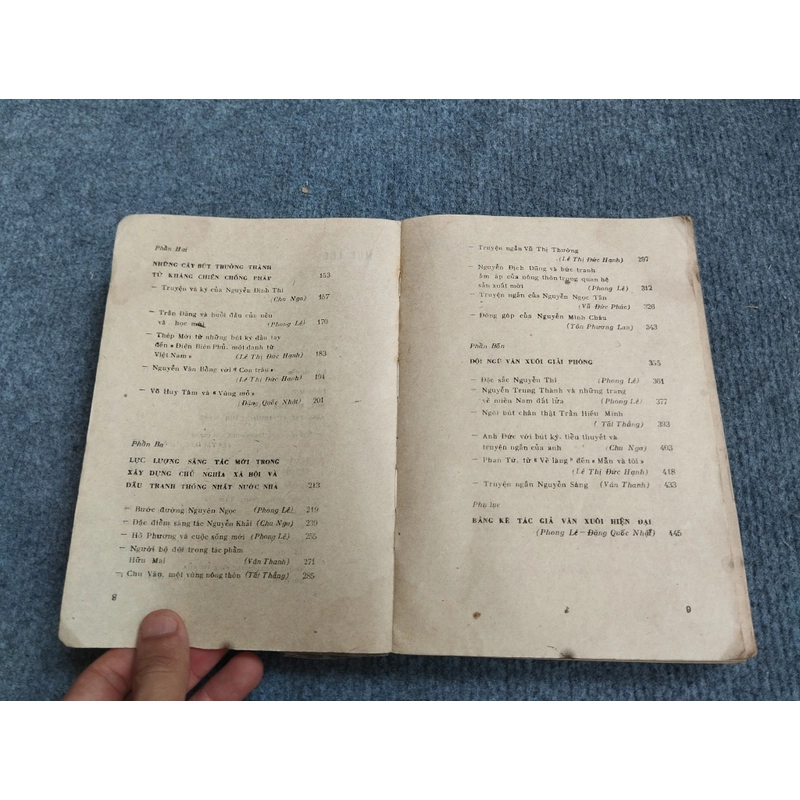 Phần Hai
NHỮNG CÂY BÚT TRƯỞNG THÀNH
TỪ KHÁNG CHIẾN CHỐNG PHÁP 153
— Truyện và ký của Nguyễn Đình Thi
(Chu Nga) 157
— Trần Đăng và buổi đầu của nền
văn học mới (Phong Lê) 170
— Thép Mới từ những bút ký đầu tay
đến « Điện Biên Phủ, một danh từ
Việt Nam » (Lê Thị Đức Hạnh) 183
— Nguyễn Văn Bổng với « Con trâu »
(Lê Thị Đức Hạnh) 194
— Võ Huy Tâm và « Vùng mỏ »
(Đặng Quốc Nhật) 201
Phần Ba
LỰC LƯỢNG SÁNG TÁC MỚI TRONG
XÂY DỰNG CHỦ NGHĨA XÃ HỘI VÀ
ĐẤU TRANH THỐNG NHẤT NƯỚC NHÀ 213
— Bước đường Nguyên Ngọc (Phong Lê) 219
— Đặc điểm sáng tác Nguyễn Khải (Chu Nga) 239
— Hồ Phương và cuộc sống mới (Phong Lê) 255
— Người bộ đội trong tác phẩm
Hữu Mai (Vân Thanh) 271
— Chu Văn, một vùng nông thôn (Tất Thắng) 285
8
— Truyện ngắn Vũ Thị Thường
(Lê Thị Đức Hạnh) 297
— Nguyễn Địch Dũng và bức tranh
ấm áp của nông thôn trong quan hệ
sản xuất mới (Phong Lê) 312
— Truyện ngắn của Nguyễn Ngọc Tấn
(Vũ Đức Phúc) 326
— Đóng góp của Nguyễn Minh Châu
(Tôn Phương Lan) 343
Phần Bốn
ĐỘI NGŨ VĂN XUÔI GIẢI PHÓNG 355
— Đặc sắc Nguyễn Thi (Phong Lê) 361
— Nguyễn Trung Thành và những trang
về miền Nam đất lửa (Phong Lê) 377
— Ngòi bút chân thật Trần Hiếu Minh
(Tất Thắng) 393
— Anh Đức với bút ký, tiểu thuyết và
truyện ngắn của anh (Chu Nga) 403
— Phan Tứ, từ « Về làng » đến « Mẫn và tôi »
(Lê Thị Đức Hạnh) 418
— Truyện ngắn Nguyễn Sáng (Vân Thanh) 433
Phụ lục
BẢNG KÊ TÁC GIẢ VĂN XUÔI HIỆN ĐẠI
(Phong Lê — Đặng Quốc Nhật) 445
9